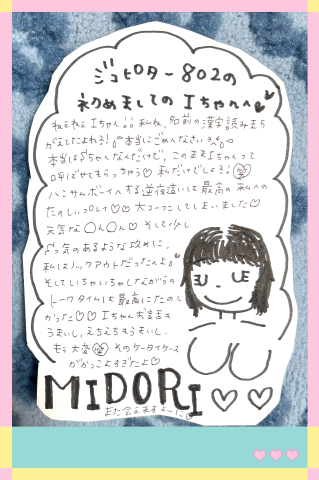 ジュピター802の
初めましての Iちゃんへ
ねぇねぇ Iちゃん!! 私ね、名前の漢字読みまち
がえてたよね?! 本当にごめんなさい
本当はSちゃんなんだけど、このままIちゃんって
呼ばせてもらっちゃう♡ 私だけでしょ?! 笑
ハンサムボーイへする逆夜這いは最高の私への
たのしいプレイ♡♡ 大コーフンしてしまいました♡
元気な〇ん〇ん♡ そして少し
Sっ気のあるような攻めに、
私はノックアウトだったんよ
そしていちゃいちゃしながらの
トークタイムは最高にたのし
かった♡♡ Iちゃんお話も
うまいし、えちえちもうまいし、
もう大変 笑 そのケータイケース
がかっこよすぎたよ♡
MIDORI
また会えますよーに